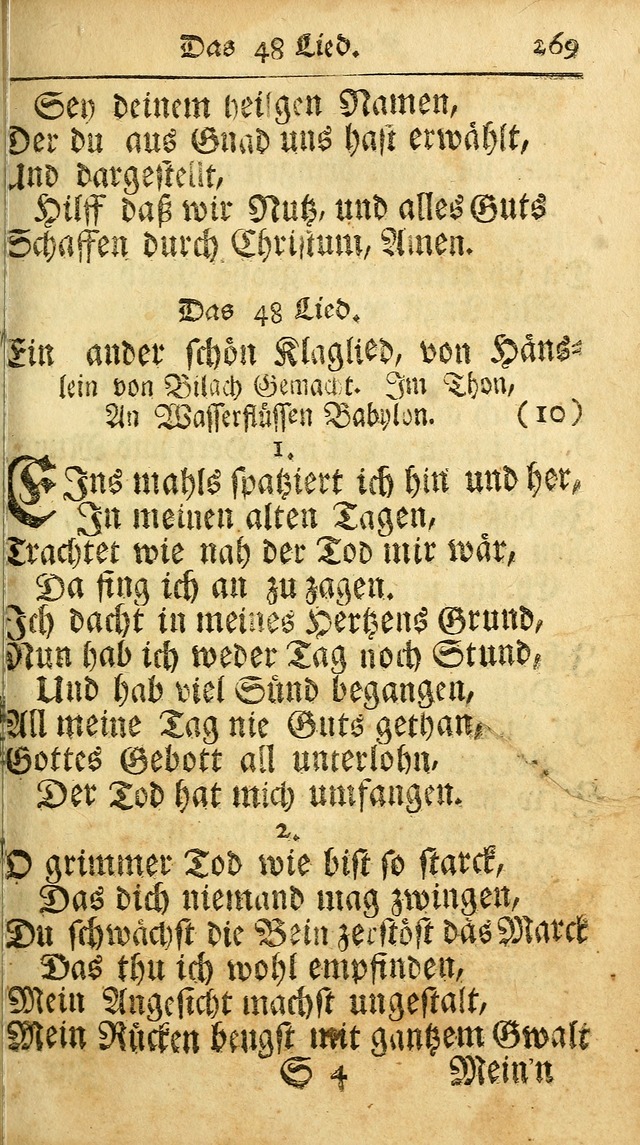 Das 48 Lied. 269
Sey deinem heilgen Namen,
Der du aus Gnad uns hast erwåhlt,
Und dargestellt,
Hilff daß wir Nutz, und alles Guts
Schaffen durch Christum, Amen.
Das 48 Lied.
Ein ander schön Klaglied, von Håns⸗
lein von Bilach Gemacht. Im Thon,
An Wasserflüssen Babylon. (10)
1.
EIns mahls spatziert ich hin und her,
In meinen alten Tagen,
Trachtet wie nah der Tod mir wår,
Da fing ich an zu zagen.
Ich dacht in meines Hertzens Grund,
Nun hab ich weder Tag noch Stund,
Und hab viel Sünd begangen,
All meine Tag nie Guts gethan,
Gottes Gebott all unterlohn,
Der Tod hat mich umfangen.
2.
O grimmer Tod wie bist so starck,
Das dich niemand mag zwingen,
Du schwåchst die Bein zerstöst das Marck
Das thu ich wohl empfinden,
Mein Angesicht machst ungestalt,
Mein Rücken beugst mit gantzem Gwalt
S 4 Mein'n